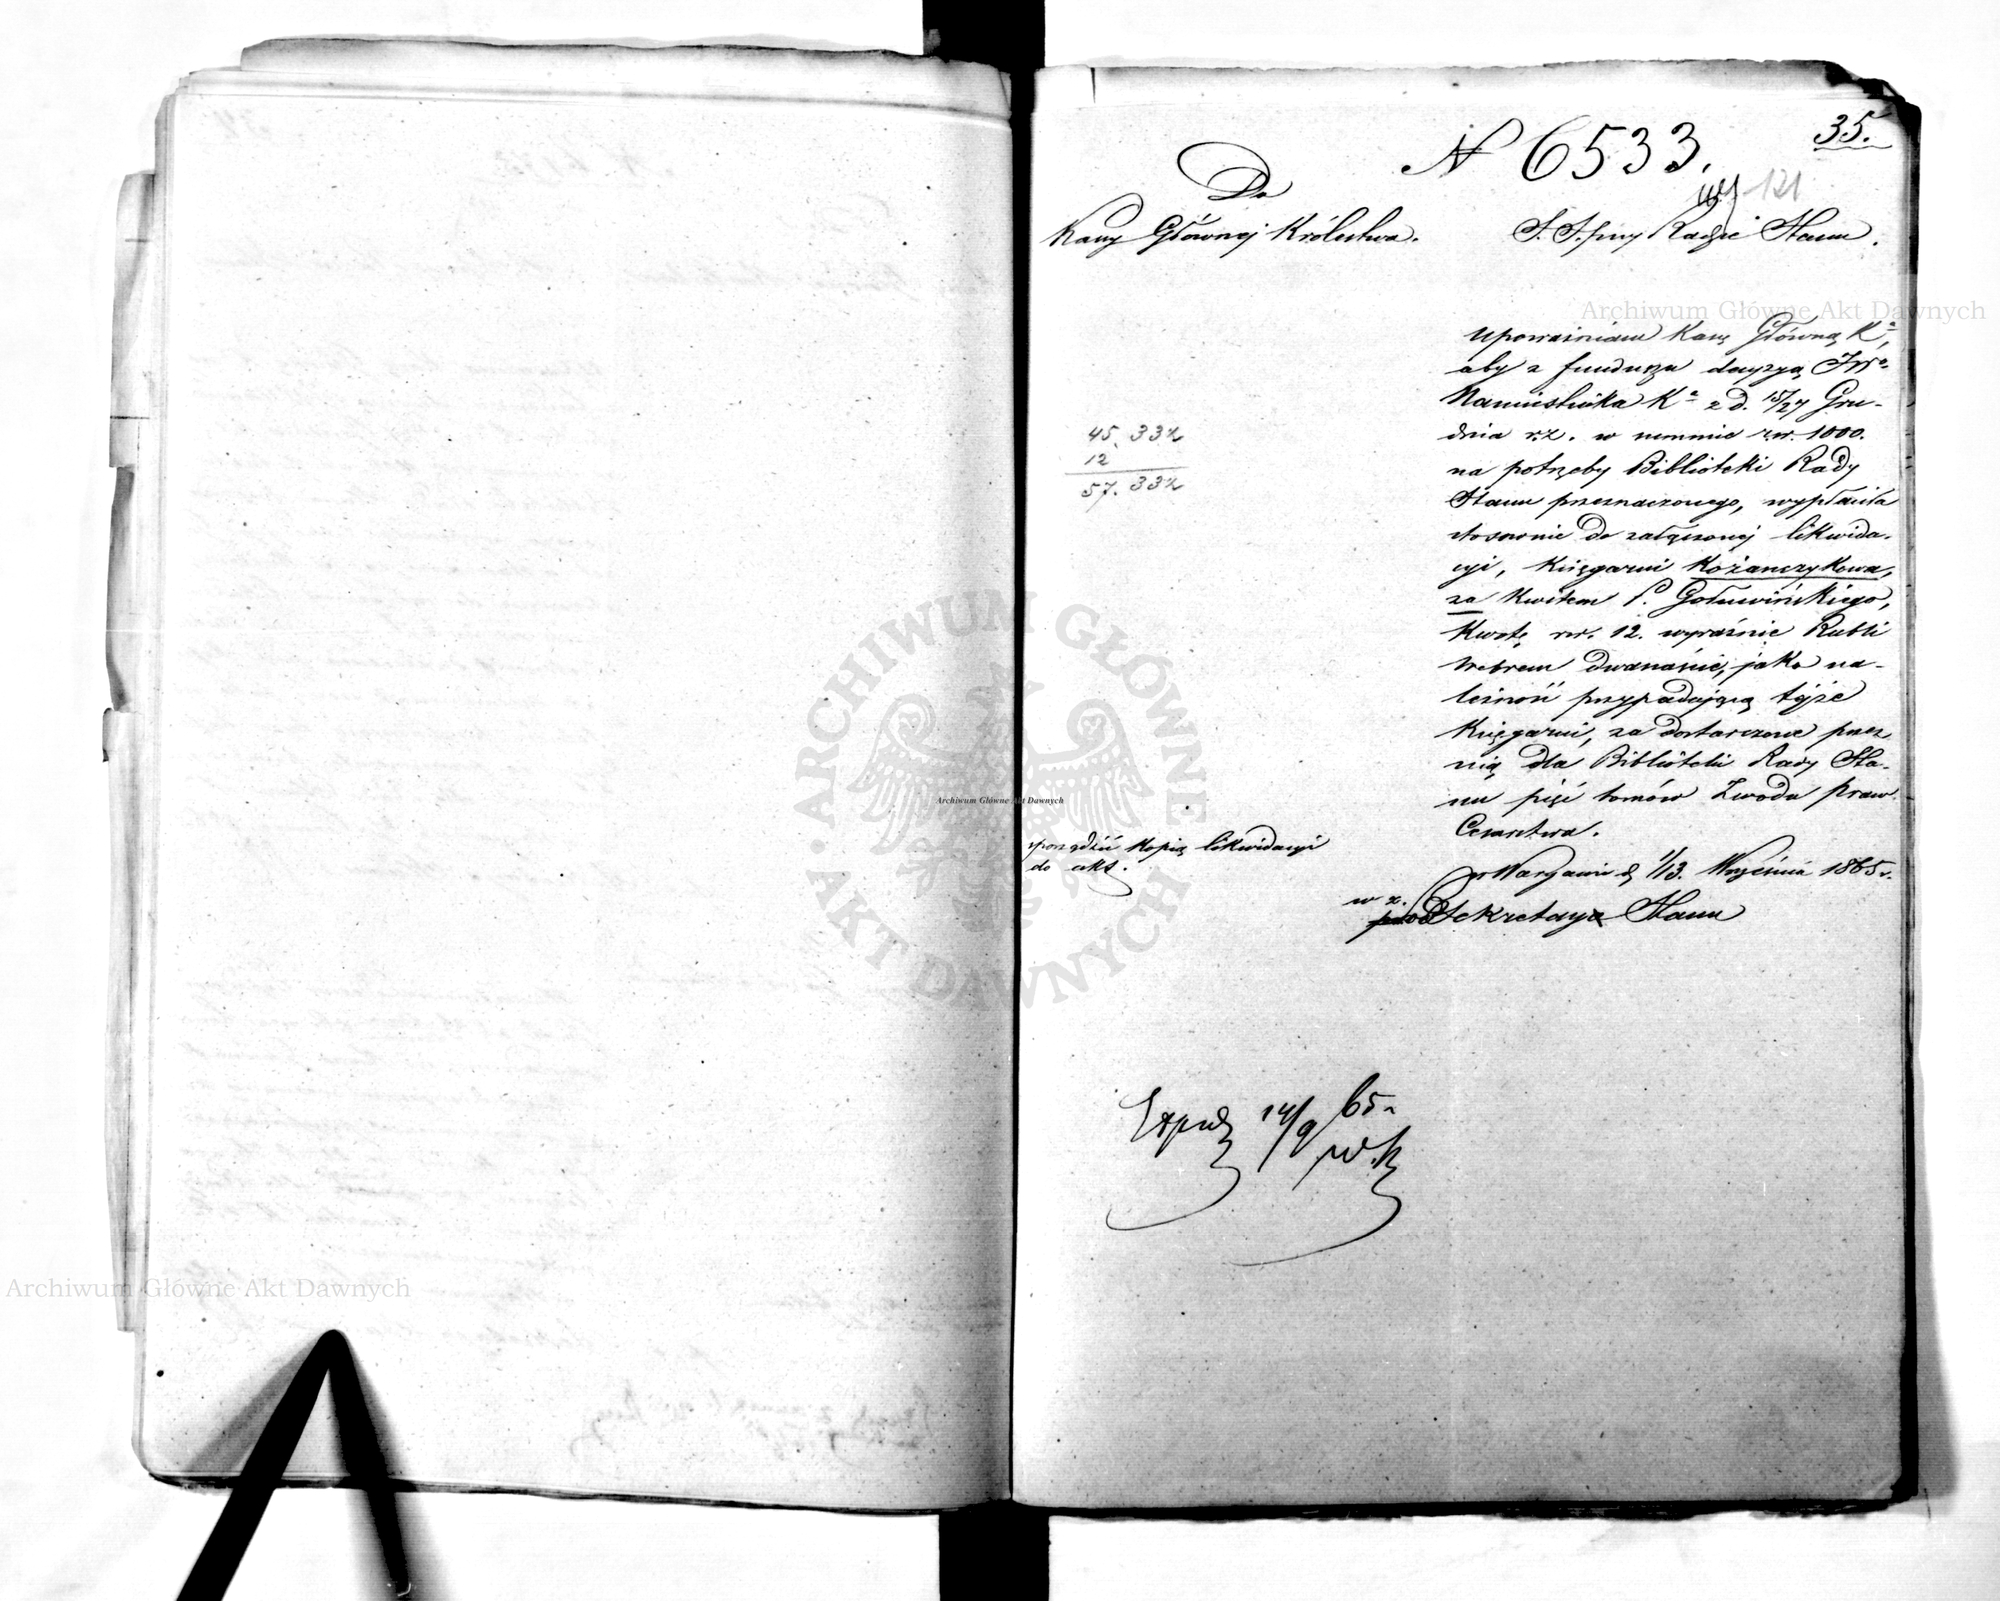 35.
N 6533.
121
Do
Kassy Głównej Królestwa.
S. S. przy Radzie Stanu.
Upoważniam Kassę Główną K.ª,
aby z funduszu decyzją JWº
Namiestnika K.ª z d. 15/27 Gru-
dnia r.z. w summie rsr. 1000.
na potrzeby Biblioteki Rady
Stanu przeznaczonego, wypłaciła
stosownie do załączonej likwida-
cyi, Księgarni Kożanczykowa,
za kwitem P. Gołuwińskiego,
kwotę rsr. 12. wyraźnie Rubli
srebrem dwanaście, jako na-
leżność przypadającą tejże
Księgarni, za dostarczone przez
nią dla Biblioteki Rady Sta-
nu pięć tomów Zwodu praw
Cesarstwa.
45. 33½
12
57. 33½
sporządzić kopię likwidacyi
do akt.
w Warszawie d. 1/13. Września 1865 r.
w z.
Sekretarza Stanu
Exped 14/9 65 r
Archiwum Główne Akt Dawnych
Archiwum Główne Akt Dawnych
Archiwum Główne Akt Dawnych
ARCHIWUM GŁÓWNE AKT DAWNYCH